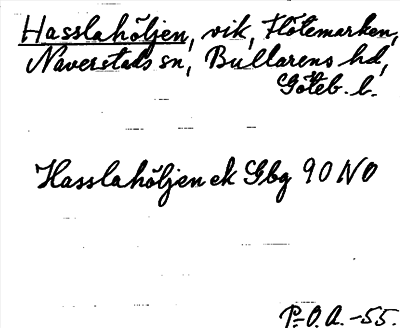 Hasslahöljen, vik, Flötemarken,
Naverstads sn, Bullarens hd,
Göteb. l.
Hasslahöljen ek Gbg 90 NO
P-O.A. -55.